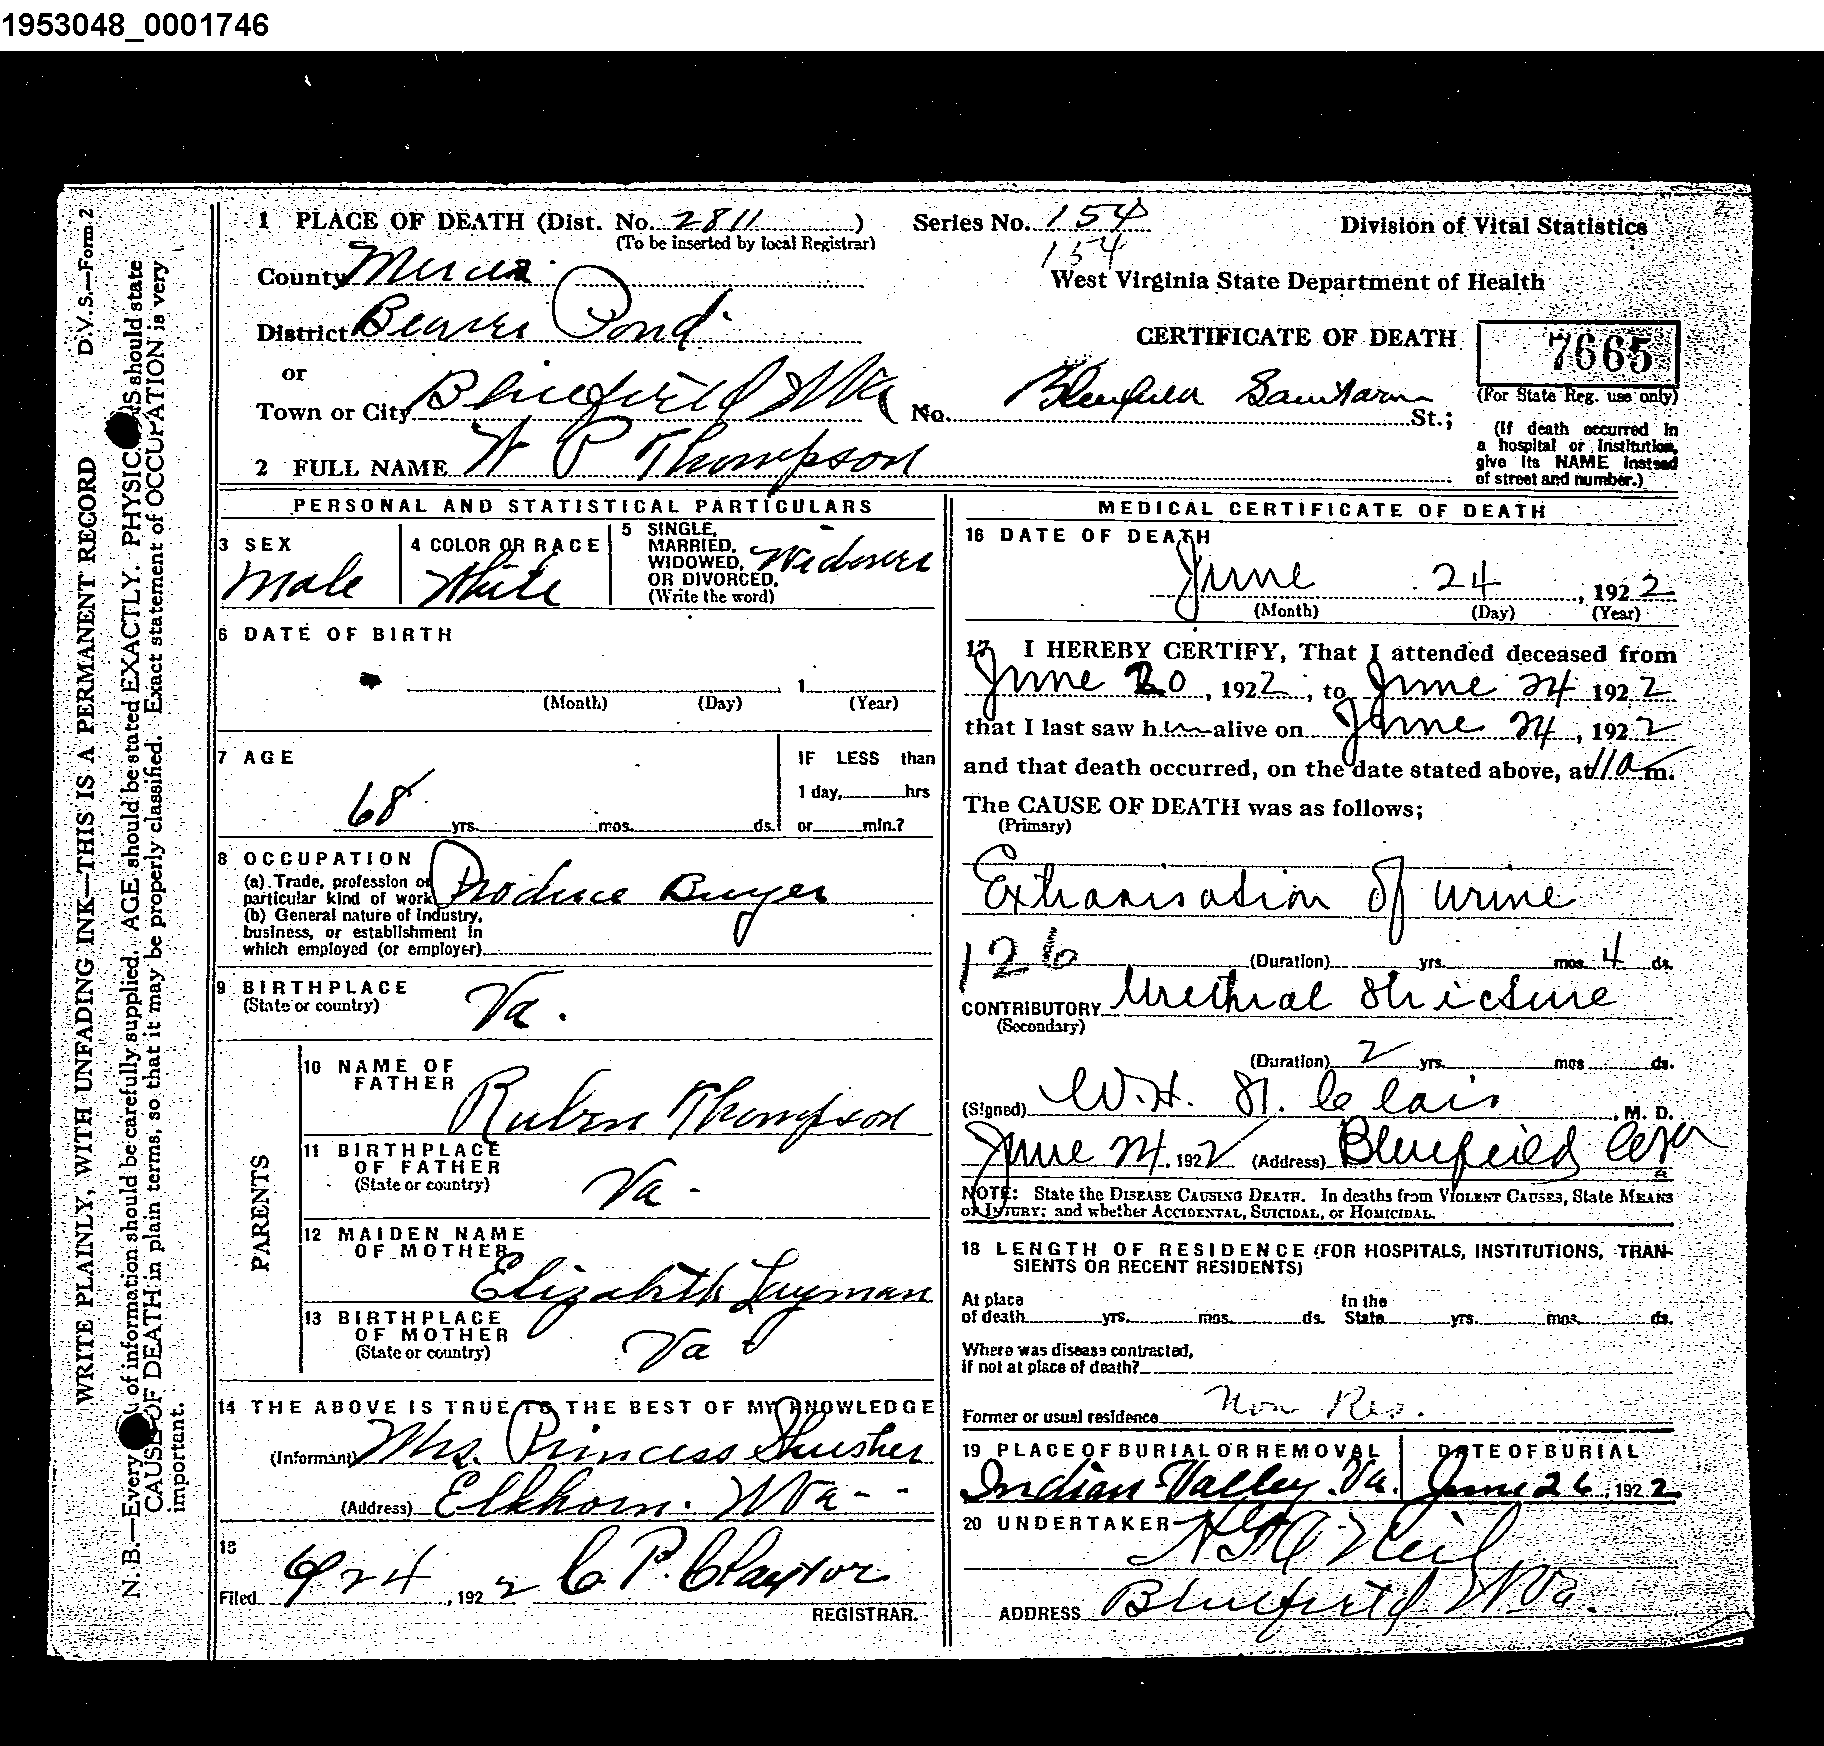 1953048_0001746
1 PLACE OF DEATH (Dist. No. 2811 ) Series No. 154 Division of Vital Statistics
(To be inserted by local Registrar) 154
County Mercer West Virginia State Department of Health
District Beaver Pond CERTIFICATE OF DEATH 7665
or (For State Reg. use only)
Town or City Bluefield W Va No. Bluefield Sanitarium St.;
(If death occurred in
a hospital or institution,
give its NAME instead
of street and number.)
2 FULL NAME W P Thompson
PERSONAL AND STATISTICAL PARTICULARS
3 SEX
Male
4 COLOR OR RACE
White
5 SINGLE,
MARRIED,
WIDOWED,
OR DIVORCED.
(Write the word)
Widower
6 DATE OF BIRTH
1
(Month) (Day) (Year)
7 AGE
68 yrs. mos. ds.
IF LESS than
1 day, hrs
or min.?
8 OCCUPATION
(a) Trade, profession or
particular kind of work Produce Buyer
(b) General nature of Industry,
business, or establishment in
which employed (or employer)
9 BIRTHPLACE
(State or country) Va.
PARENTS
10 NAME OF
FATHER
Ruben Thompson
11 BIRTHPLACE
OF FATHER
(State or country) Va -
12 MAIDEN NAME
OF MOTHER
Elizabeth Layman
13 BIRTHPLACE
OF MOTHER
(State or country) Va
14 THE ABOVE IS TRUE TO THE BEST OF MY KNOWLEDGE
(Informant) Mrs. Princess Shusher
(Address) Elkhorn. W Va - -
15
Filed 6 24, 1922 C. P. Claytor
REGISTRAR.
MEDICAL CERTIFICATE OF DEATH
16 DATE OF DEATH
June 24, 1922
(Month) (Day) (Year)
17 I HEREBY CERTIFY, That I attended deceased from
June 20, 1922, to June 24 1922
that I last saw h im alive on June 24, 1922
and that death occurred, on the date stated above, at 11 a m.
The CAUSE OF DEATH was as follows;
(Primary)
Extravisation of urine
126 (Duration) yrs. mos 4 ds.
CONTRIBUTORY Urethral Stricture
(Secondary)
(Duration) 2 yrs. mos ds.
(Signed) W. H. St. Clair, M. D.
June 24. 1922 (Address) Bluefield W Va
NOTE: State the DISEASE CAUSING DEATH. In deaths from VIOLENT CAUSES, State MEANS
of INJURY; and whether ACCIDENTAL, SUICIDAL, or HOMICIDAL.
18 LENGTH OF RESIDENCE (FOR HOSPITALS, INSTITUTIONS, TRAN-
SIENTS OR RECENT RESIDENTS)
At place In the
of death yrs. mos. ds. State yrs. mos. ds.
Where was disease contracted,
if not at place of death?
Former or usual residence Non Res.
19 PLACE OF BURIAL OR REMOVAL DATE OF BURIAL
Indian Valley. Va. June 26, 1922
20 UNDERTAKER
ADDRESS Bluefield W. Va.
D.V.S.—Form 2
WRITE PLAINLY, WITH UNFADING INK—THIS IS A PERMANENT RECORD
N. B.—Every of information should be carefully supplied. AGE should be stated EXACTLY. PHYSICIANS should state
CAUSE OF DEATH in plain terms, so that it may be properly classified. Exact statement of OCCUPATION is very
important.